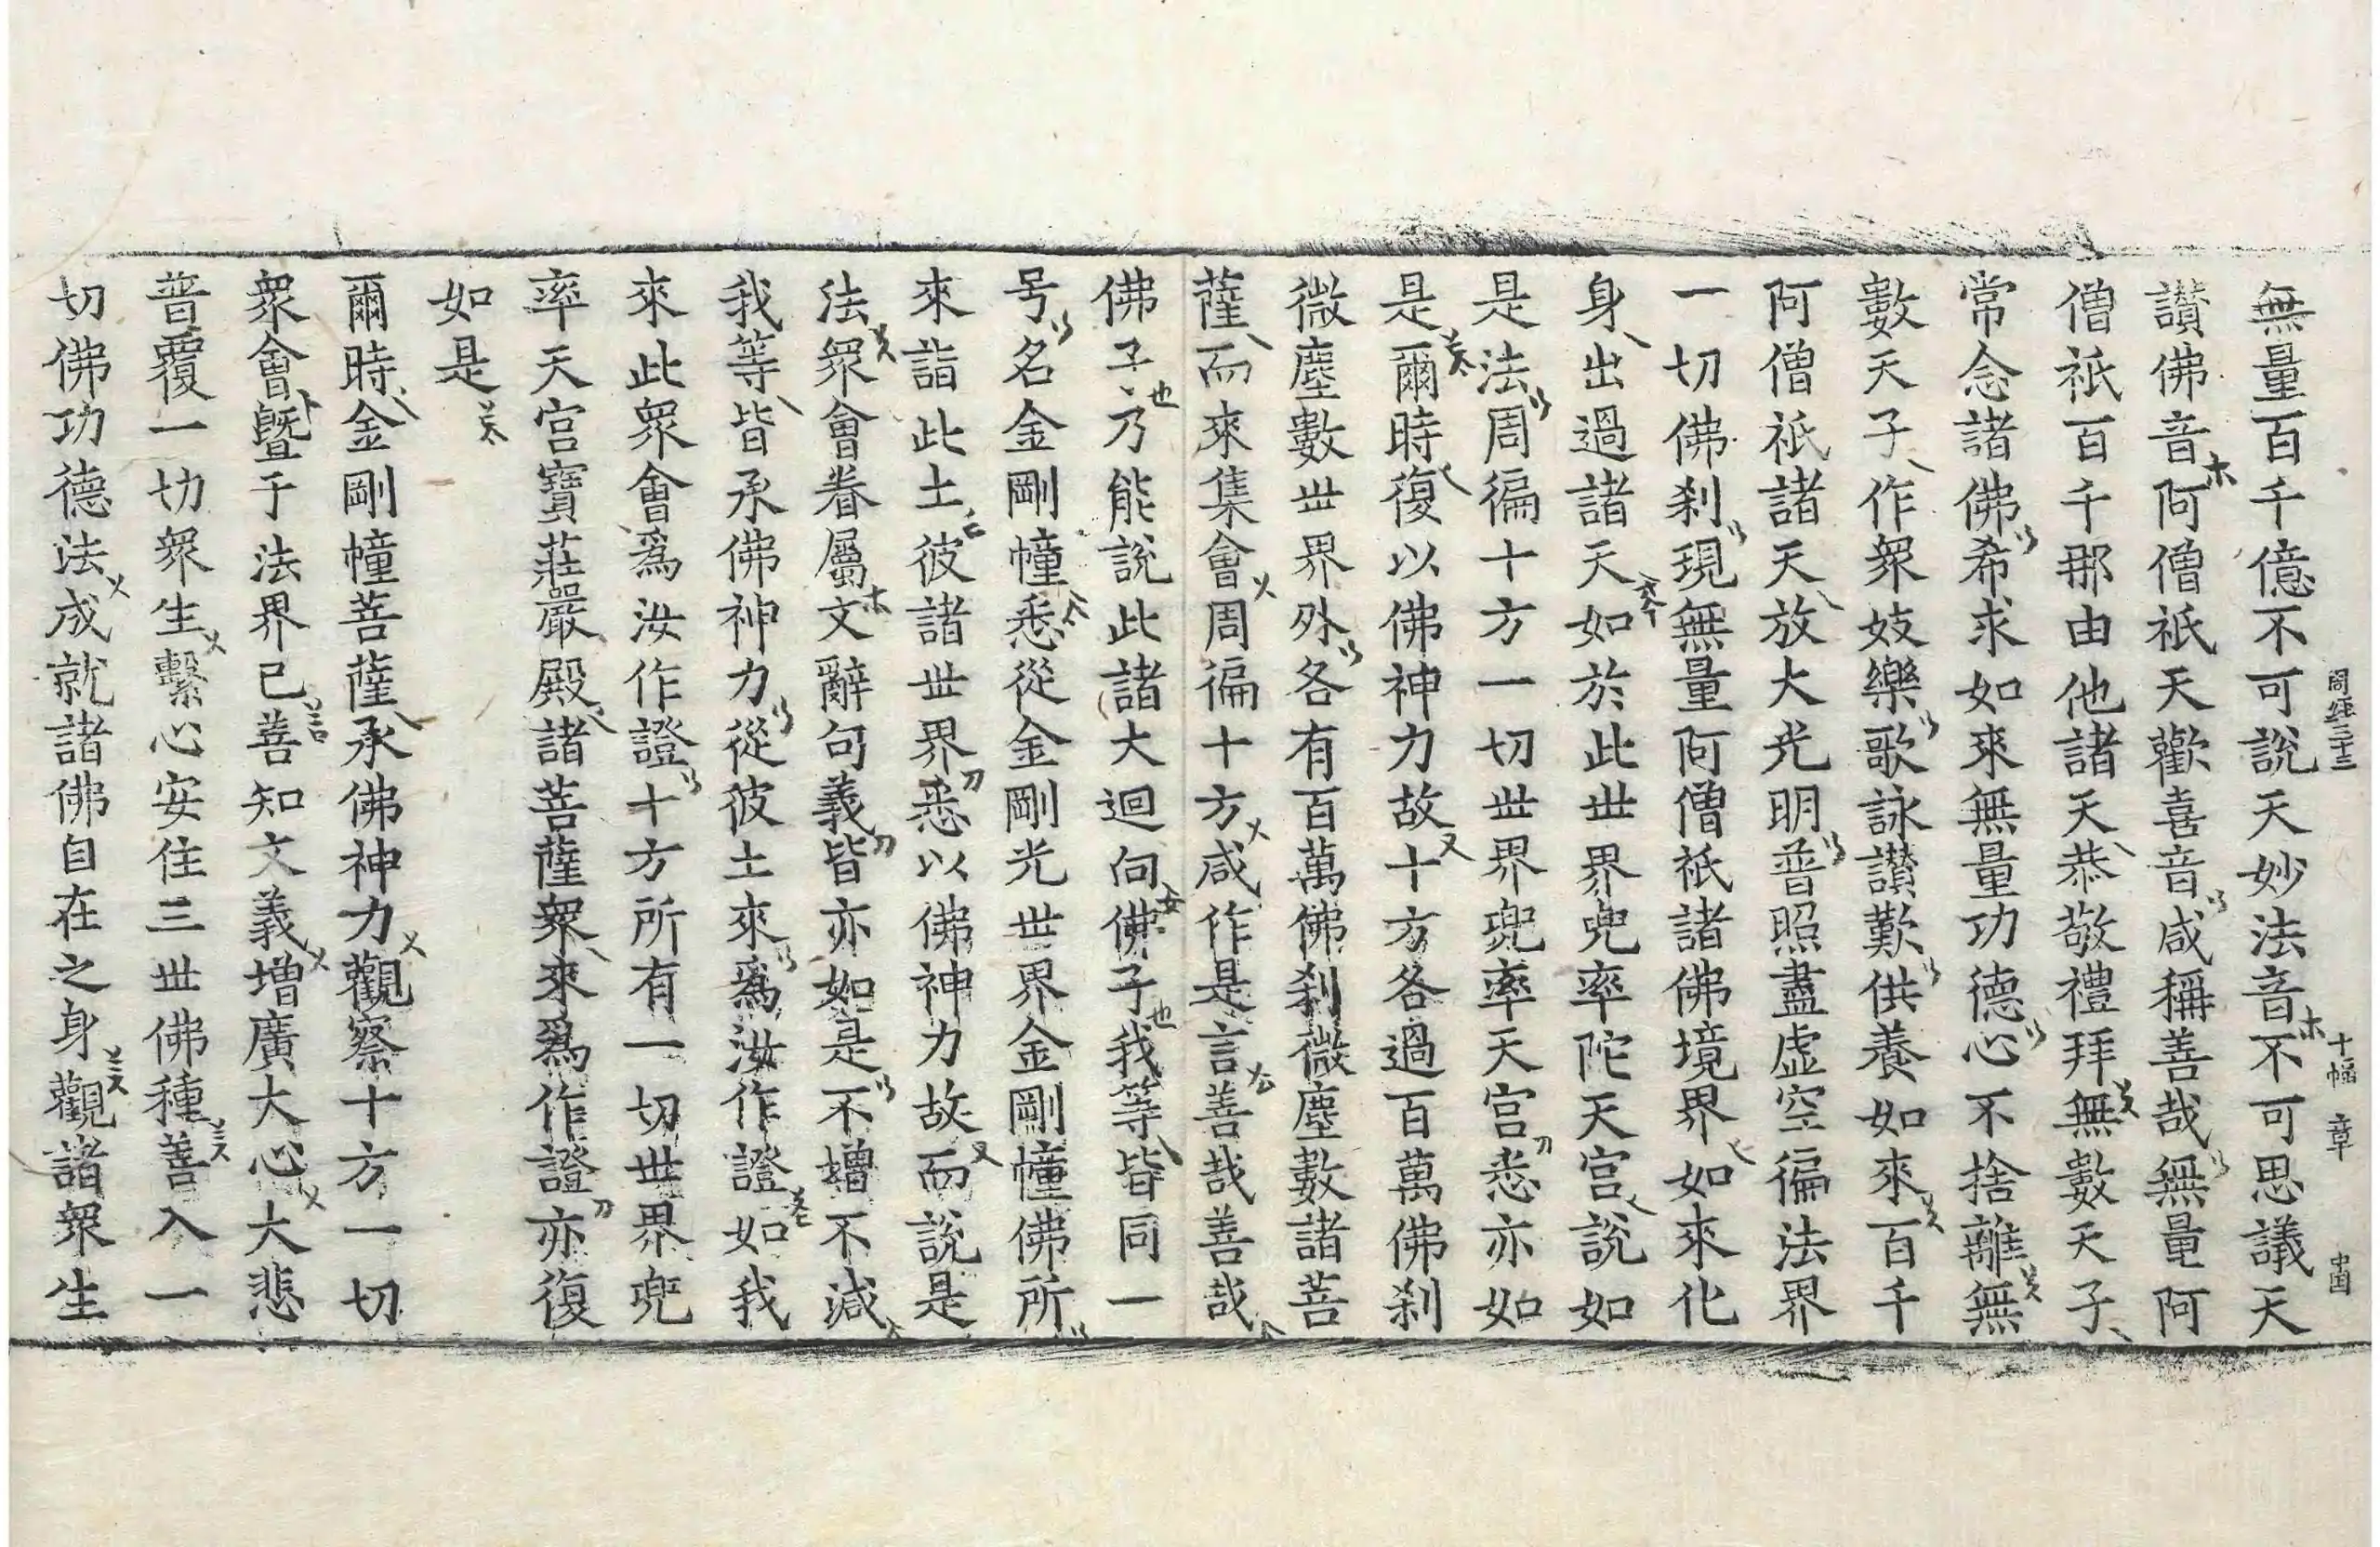 周經三十三 十幅 章
無量百千億不可說天妙法音不可思議天
讃佛音阿僧祇天歡喜音咸稱善哉無量阿
僧祇百千那由他諸天恭敬禮拜無數天子
常念諸佛希求如來無量功德心不捨離無
數天子作衆妓樂歌詠讃歎供養如來百千
阿僧祇諸天放大光明普照盡虛空徧法界
一切佛刹現無量阿僧祇諸佛境界如來化
身出過諸天如於此世界兜率陀天宮說如
是法周徧十方一切世界兜率天宮悉亦如
是爾時復以佛神力故十方各過百萬佛刹
微塵數世界外各有百萬佛刹微塵數諸菩
薩而來集會周徧十方咸作是言善哉善哉
佛子乃能說此諸大迴向佛子我等皆同一
号名金剛幢悉從金剛光世界金剛幢佛所
來詣此土彼諸世界悉以佛神力故而說是
法衆會眷屬文辭句義皆亦如是不增不減
我等皆承佛神力從彼土來爲汝作證如我
來此衆會爲汝作證十方所有一切世界兜
率天宮寶莊嚴殿諸菩薩衆來爲作證亦復
如是
爾時金剛幢菩薩承佛神力觀察十方一切
衆會曁于法界已善知文義增廣大心大悲
普覆一切衆生繫心安住三世佛種善入一
切佛功德法成就諸佛自在之身觀諸衆生